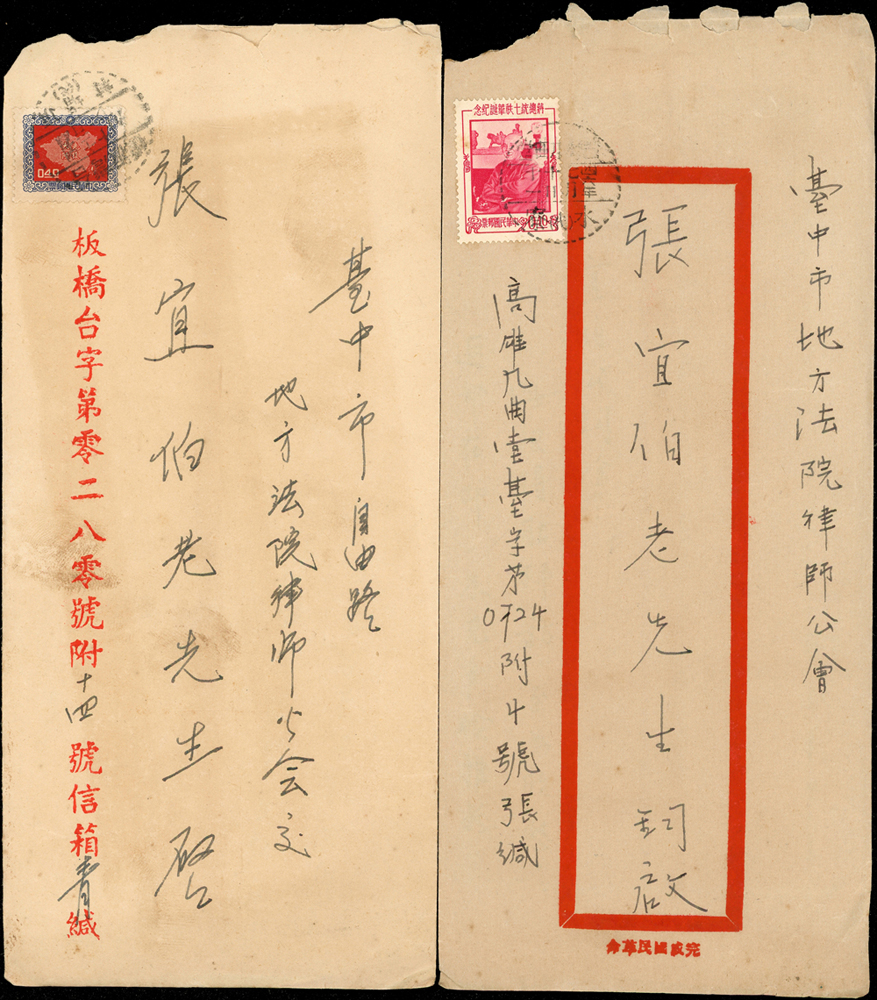 臺中市自由路
地方法院律師公会交
張宜伯老先生啓
板橋台字第零二八零號附十四號信箱青緘
040
臺中市地方法院律師公會
張宜伯老先生鈞啟
完成國民革命
高雄九曲堂臺字第0724附4號張緘
蔣總統七秩華誕紀念
中華民國郵票
0.40